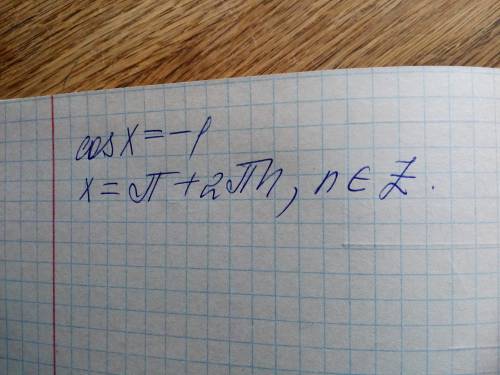 cos x = -1
x = π + 2πn, n ∈ Z.